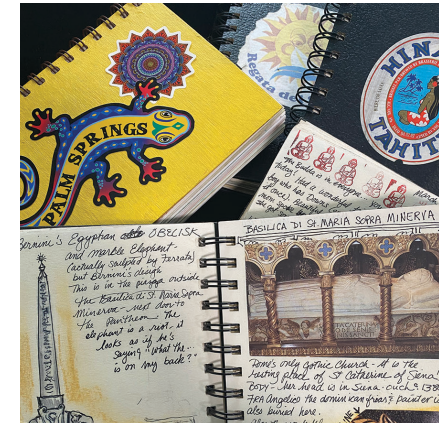 PALM SPRINGS
Regata de
HINA
TAHITI
The Budda is in everyone
today! Had a wonderful
March
Bernini's Egyptian OBELISK
and marble Elephant-
(actually sculpted by Ferrata)
but Bernini's design
This is in the piazza outside
the Basilica di St. Maria Sopra
Minerva - next door to
the Pantheon. The
elephant is a riot - it
looks as if he's
saying "what the...
is on my back?"
BASILICA DI ST. MARIA SOPRA MINERVA
Rome's only gothic Church - it is the
resting place of St Catherine of Siena!
BODY - her head is in Siena - ouch!
FRA Angelico the dominican friar & painter is
also buried here.